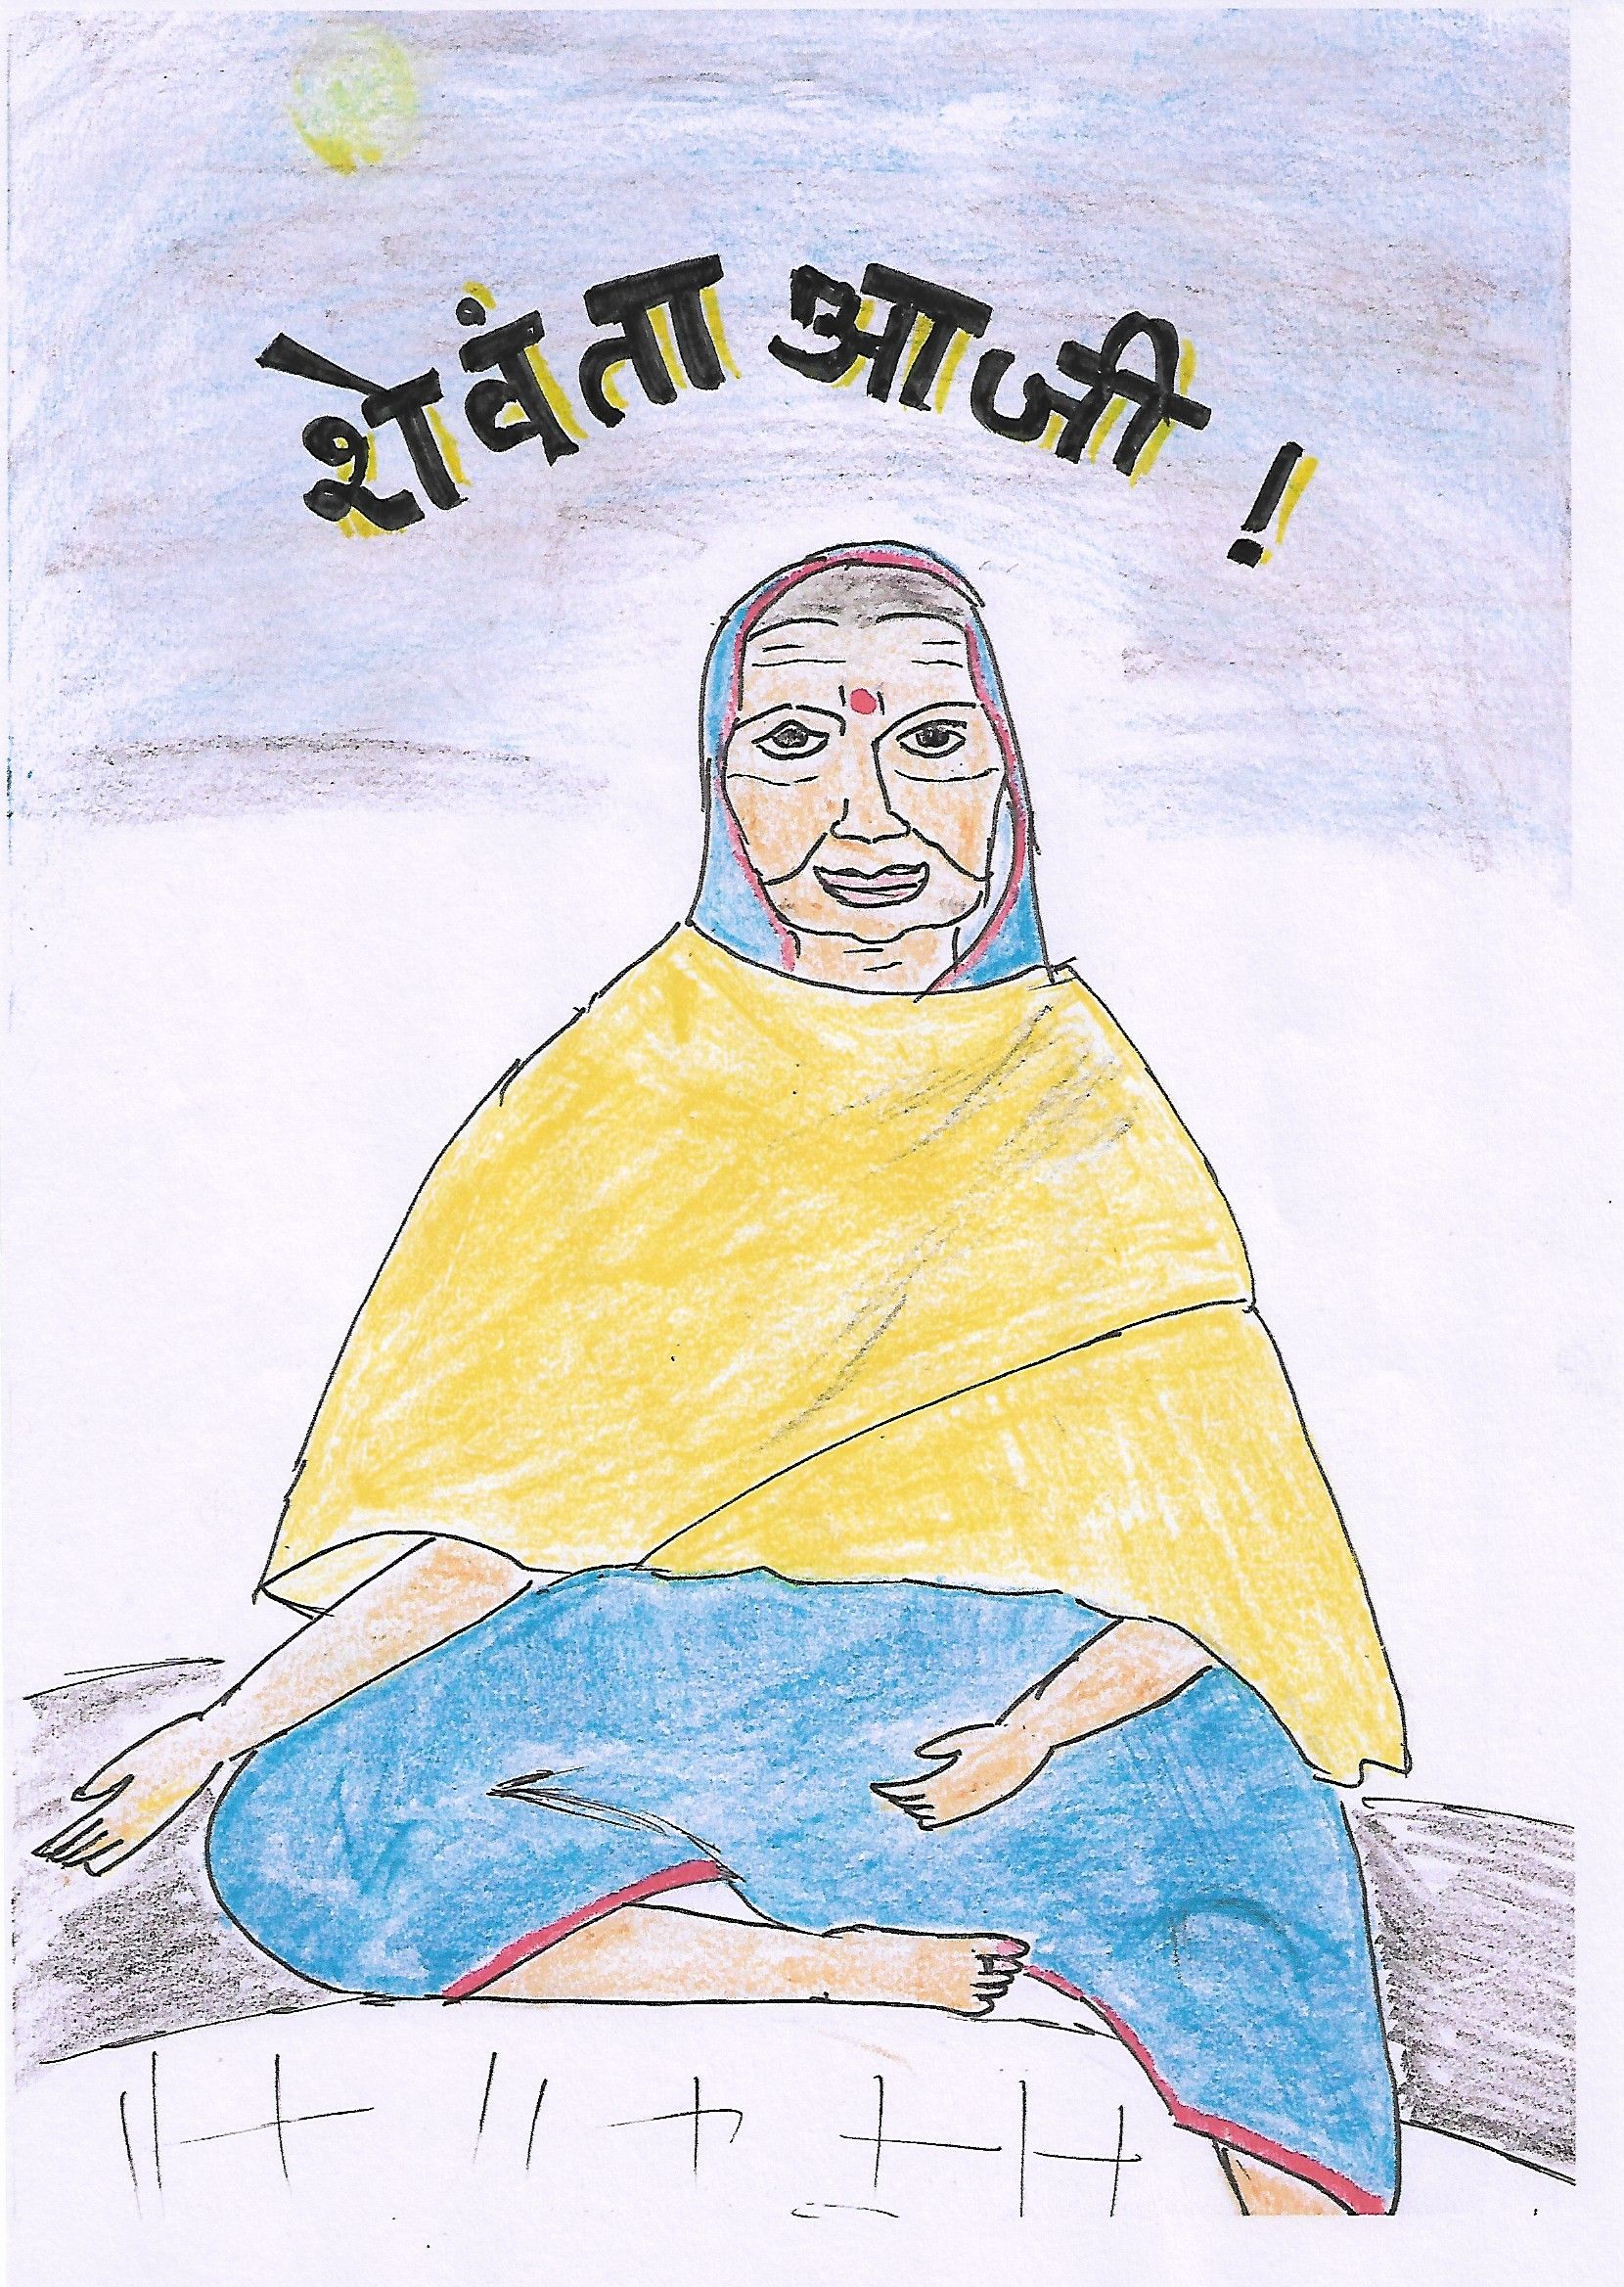 शेवंता आजी !